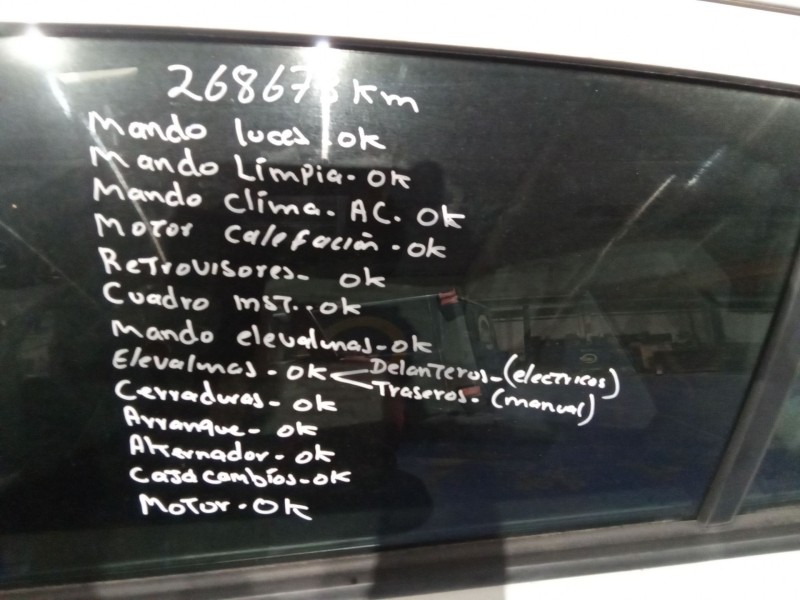 268678 Km
Mando luces. ok
Mando Limpia. ok
Mando clima. AC. ok
Motor calefación. ok
Retrovisores- ok
Cuadro inst.. ok
Mando elevalunas-ok
Elevalunas - ok Delanteros-(electricos)
Traseros. (manual)
Cerraduras- ok
Arranque- ok
Alternador- ok
Caja cambios-ok
Motor-OK